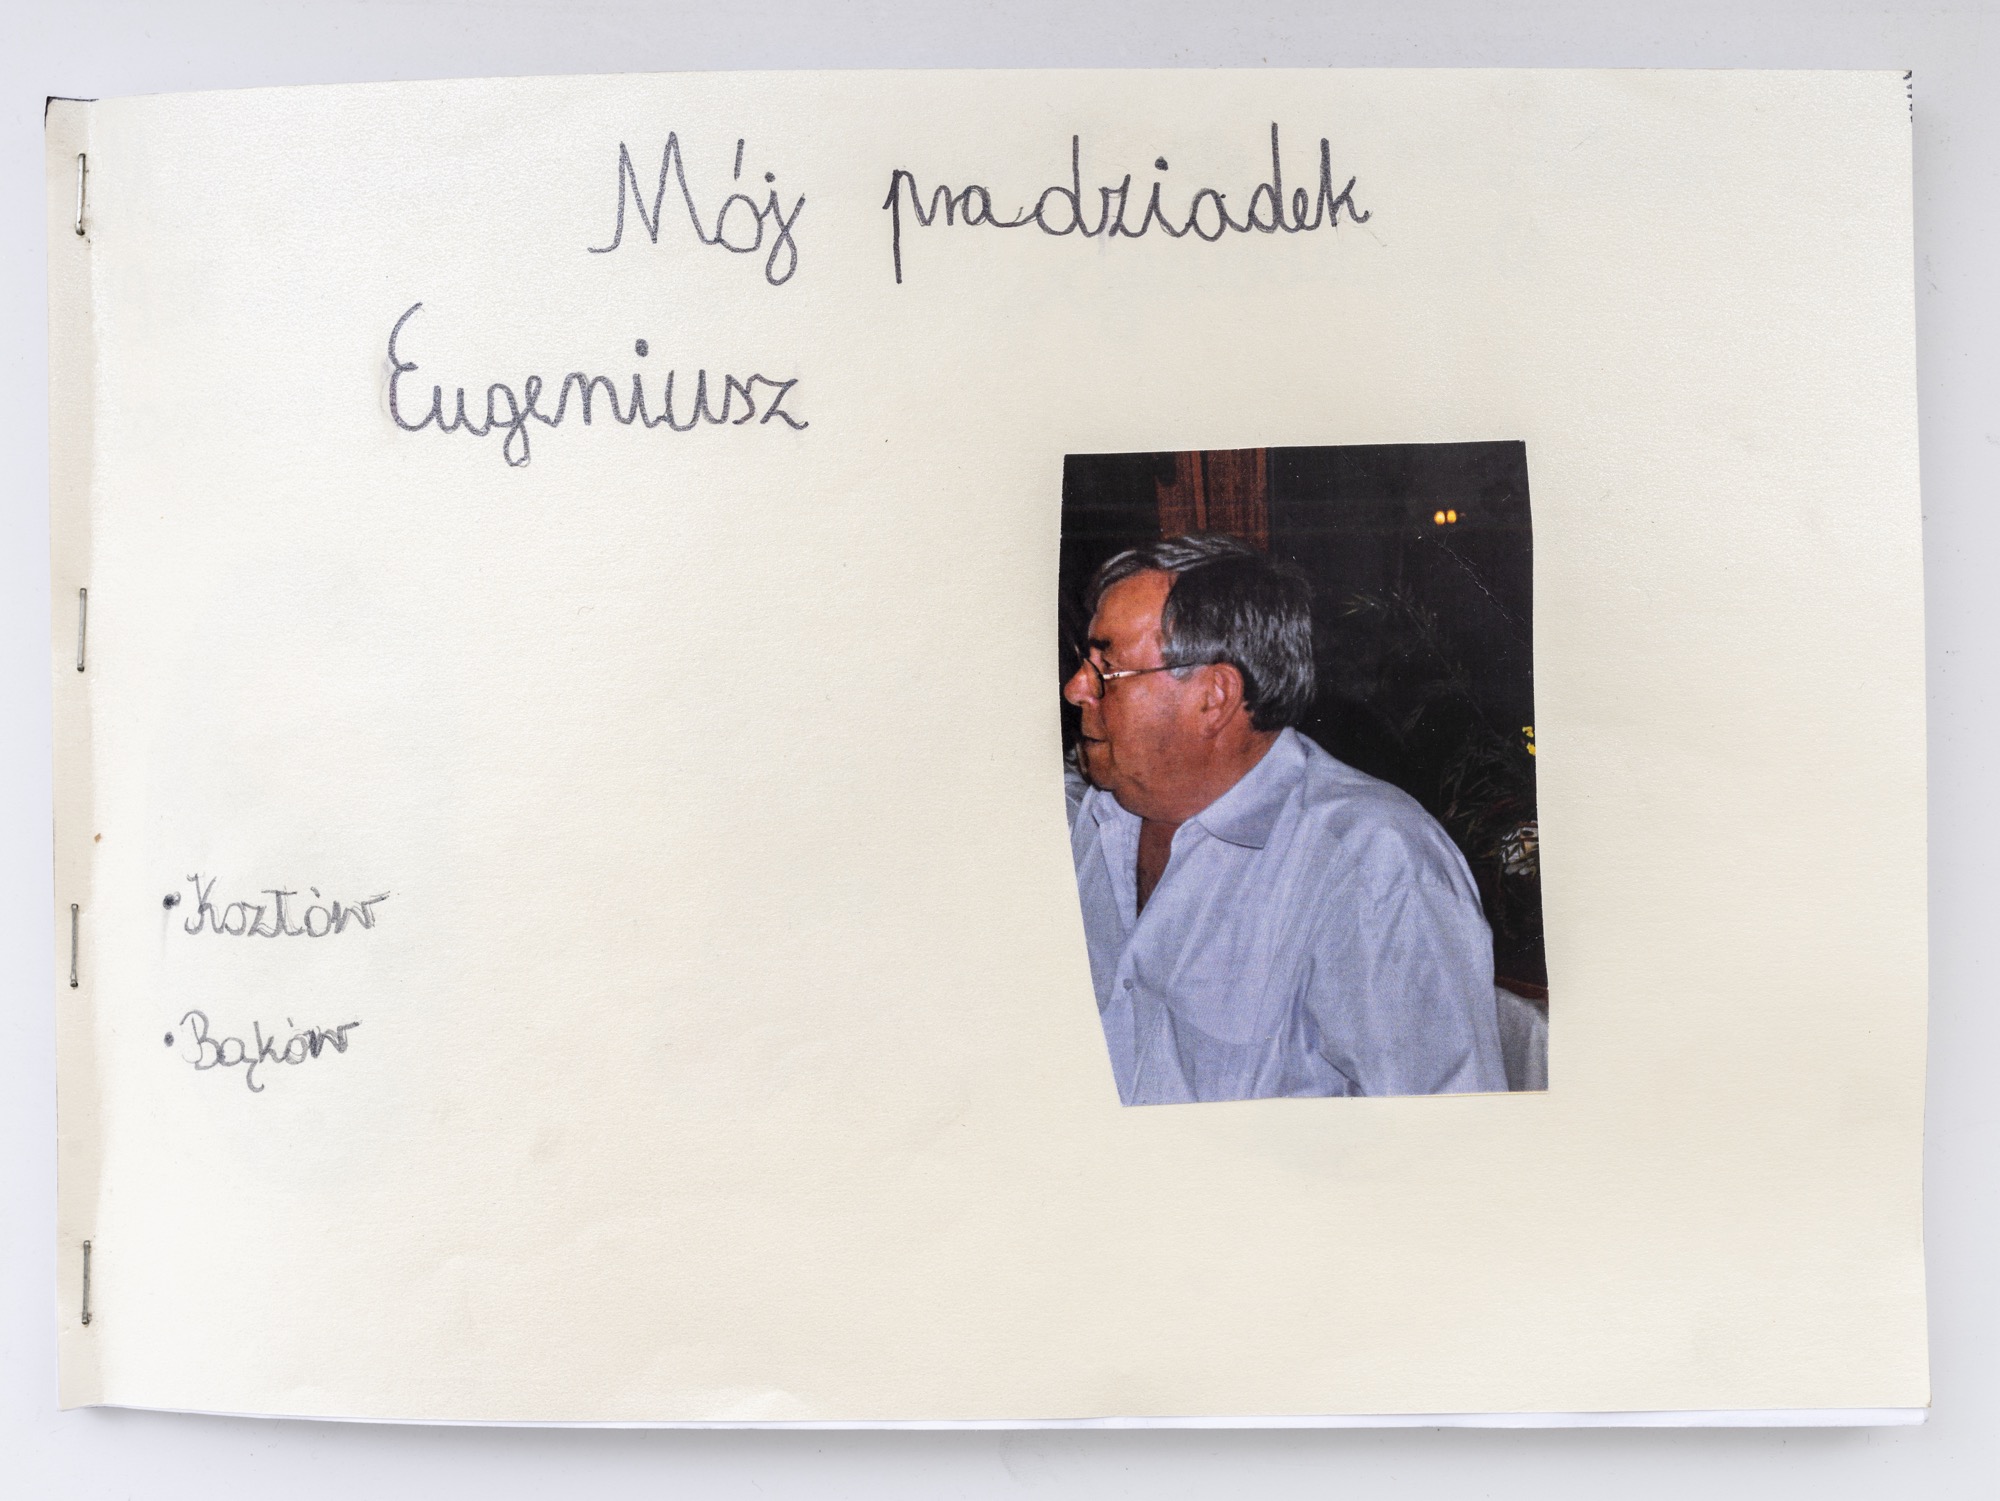 Mój pradziadek
Eugeniusz
• Kosztów
• Bąków